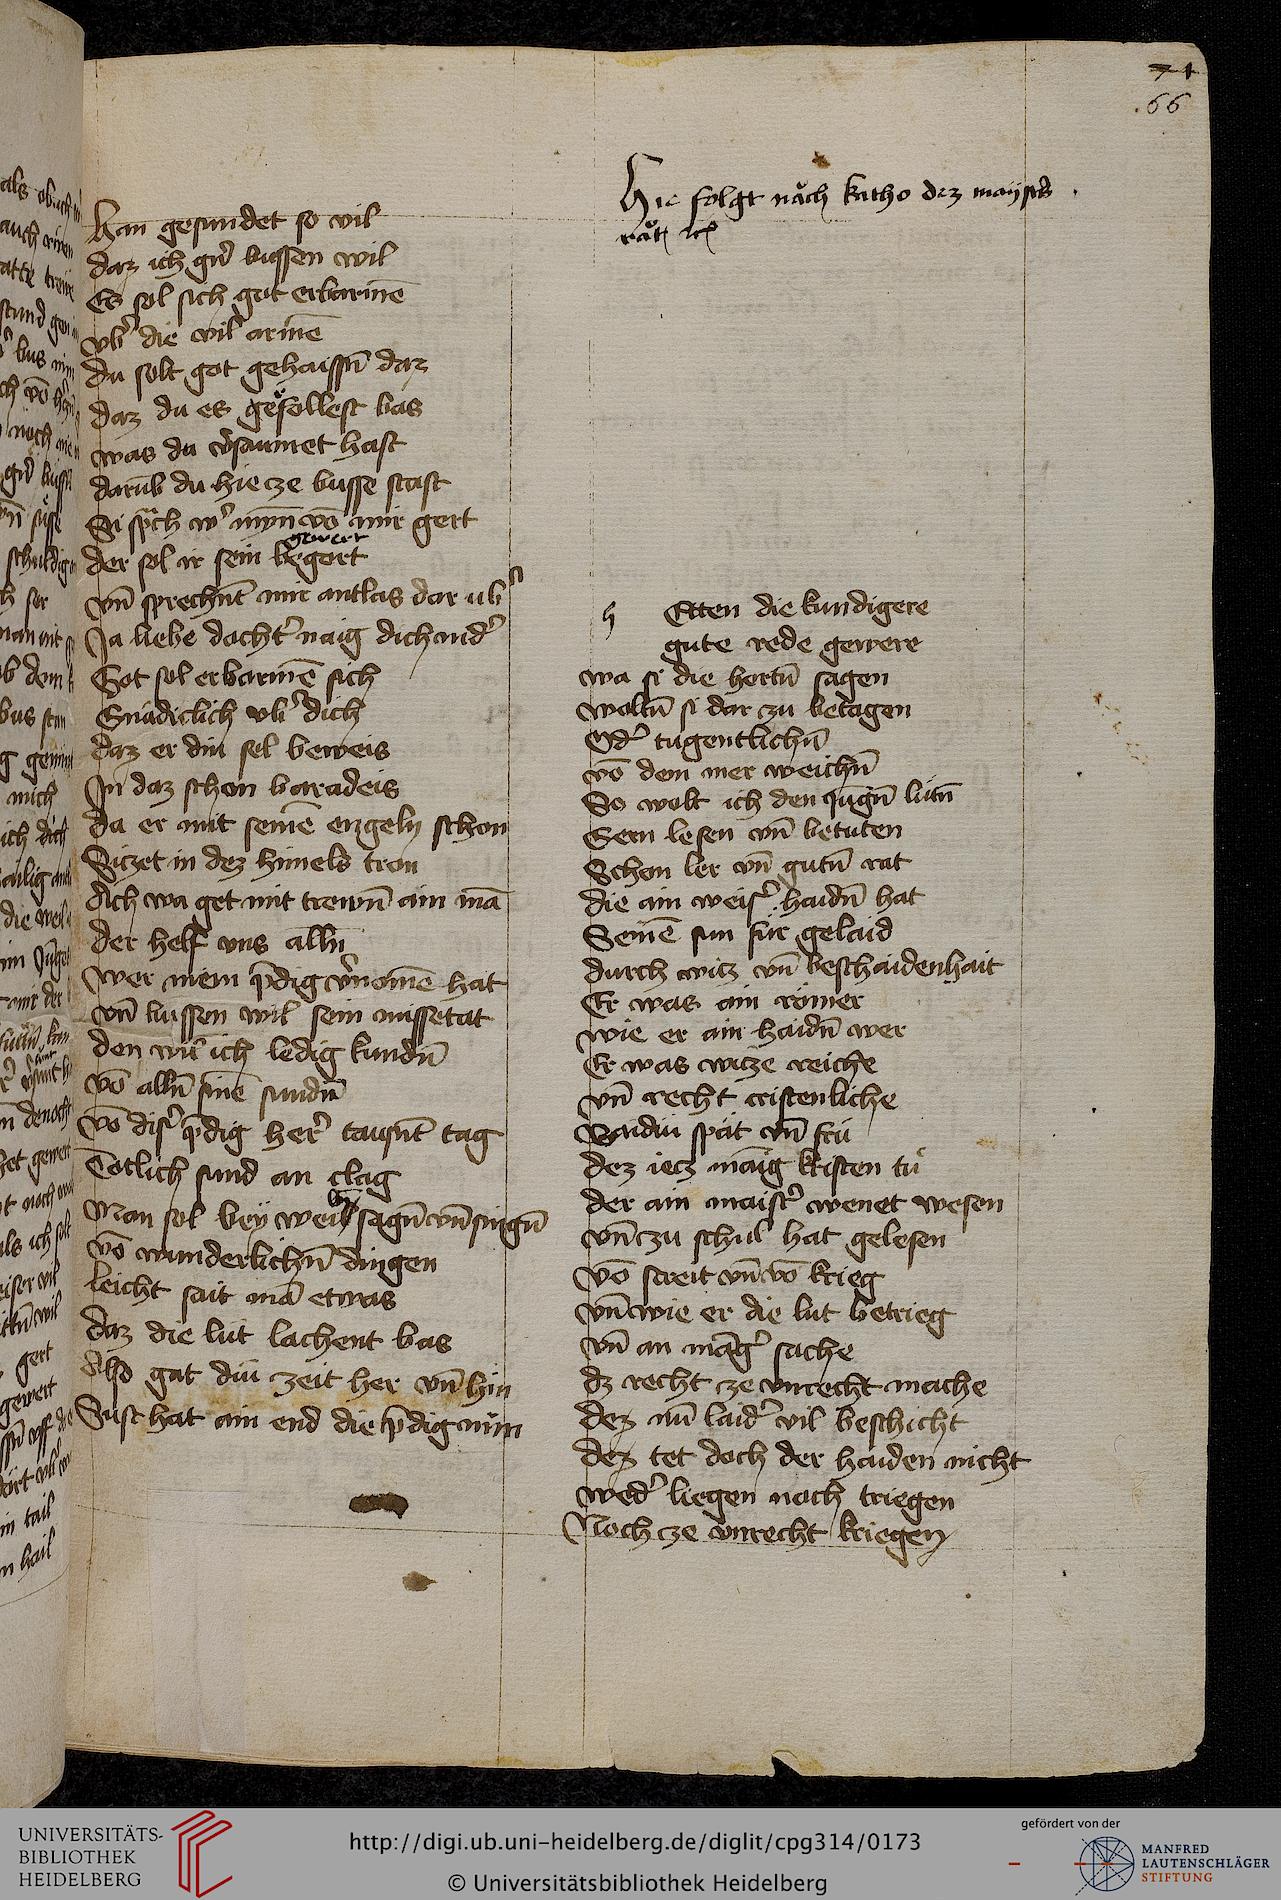 71
66
han gesundet so vil
daz ich gn̄ bussen wil
Es sol sich got erbarmē
vbˀ die vil armē
du solt got gehaissn̄ daz
daz du es gefollest bas
was du v̄saumet hast
darūb du hie ze busse stast
Si sprach wˀ myn̄ vō mir gert
gewert
der sol ir sein begert
vn̄ sprechn̄t mir antlas dar ubˀ
Ja liebe dochtˀ naig dich nidˀ
Got sol erbarmē sich
Gnädiclich vbˀ dich
daz er din sel beweis
In daz schon baradeis
da er mit seinē engeln schon
Sitzet in dez himels tron
Ach wa get mit trewn̄ ain mā
der helf vns alln̄
Wer mein p̄dig v̄nomē hat
vn̄ bussen wil sein missetat
den wil ich ledig kundn̄
vō alln̄ sinē sundn̄
vō disˀ p̄dig herˀ tausn̄t tag
Totlich sund an clag
Man sol bey weil sagn̄ vn̄ singn̄
vō wunderlichn̄ dingen
leicht sait mā etwas
daz die lüt lachent bas
Also gat diu zeit her vn̄ hin
Sust hat ain end die p̄dig min
Hie folgt nǎch katho dez maysters
rǎt etc
h Etten die kundigere
gute rede gewere
wa si die hortn̄ sagen
woltn̄ si dar zu betagen
Odˀ tugentlichn̄
vō dem mer weichn̄
So wolt ich den iugn̄ lütn̄
Gern lesen vn̄ betuten
Schon ler vn̄ gutn̄ rat
die ain weisˀ haidn̄ hat
Seinē sun für gelaid
durch witz vn̄ beschaidenhait
Er was ain römer
wie er ain haidn̄ wer
Er was witze reiche
vn̄ recht cristenliche
Baidiu spät vn̄ frü
dez ietz mäig kristen tů
der ain maistˀ wenet wesen
vn̄ zu schul hat gelesen
vō streit vn̄ vō krieg
vn̄ wie er die lut betrieg
vn̄ an māgˀ sache
dz recht ze vnrecht mache
dez nū laidˀ vil beschicht
dez tet doch der haiden nicht
wedˀ liegen noch triegen
Noch ze vnrecht kriegen
UNIVERSITÄTS-
BIBLIOTHEK
HEIDELBERG
http://digi.ub.uni-heidelberg.de/diglit/cpg314/0173
© Universitätsbibliothek Heidelberg
gefördert von der
MANFRED
LAUTENSCHLÄGER
STIFTUNG